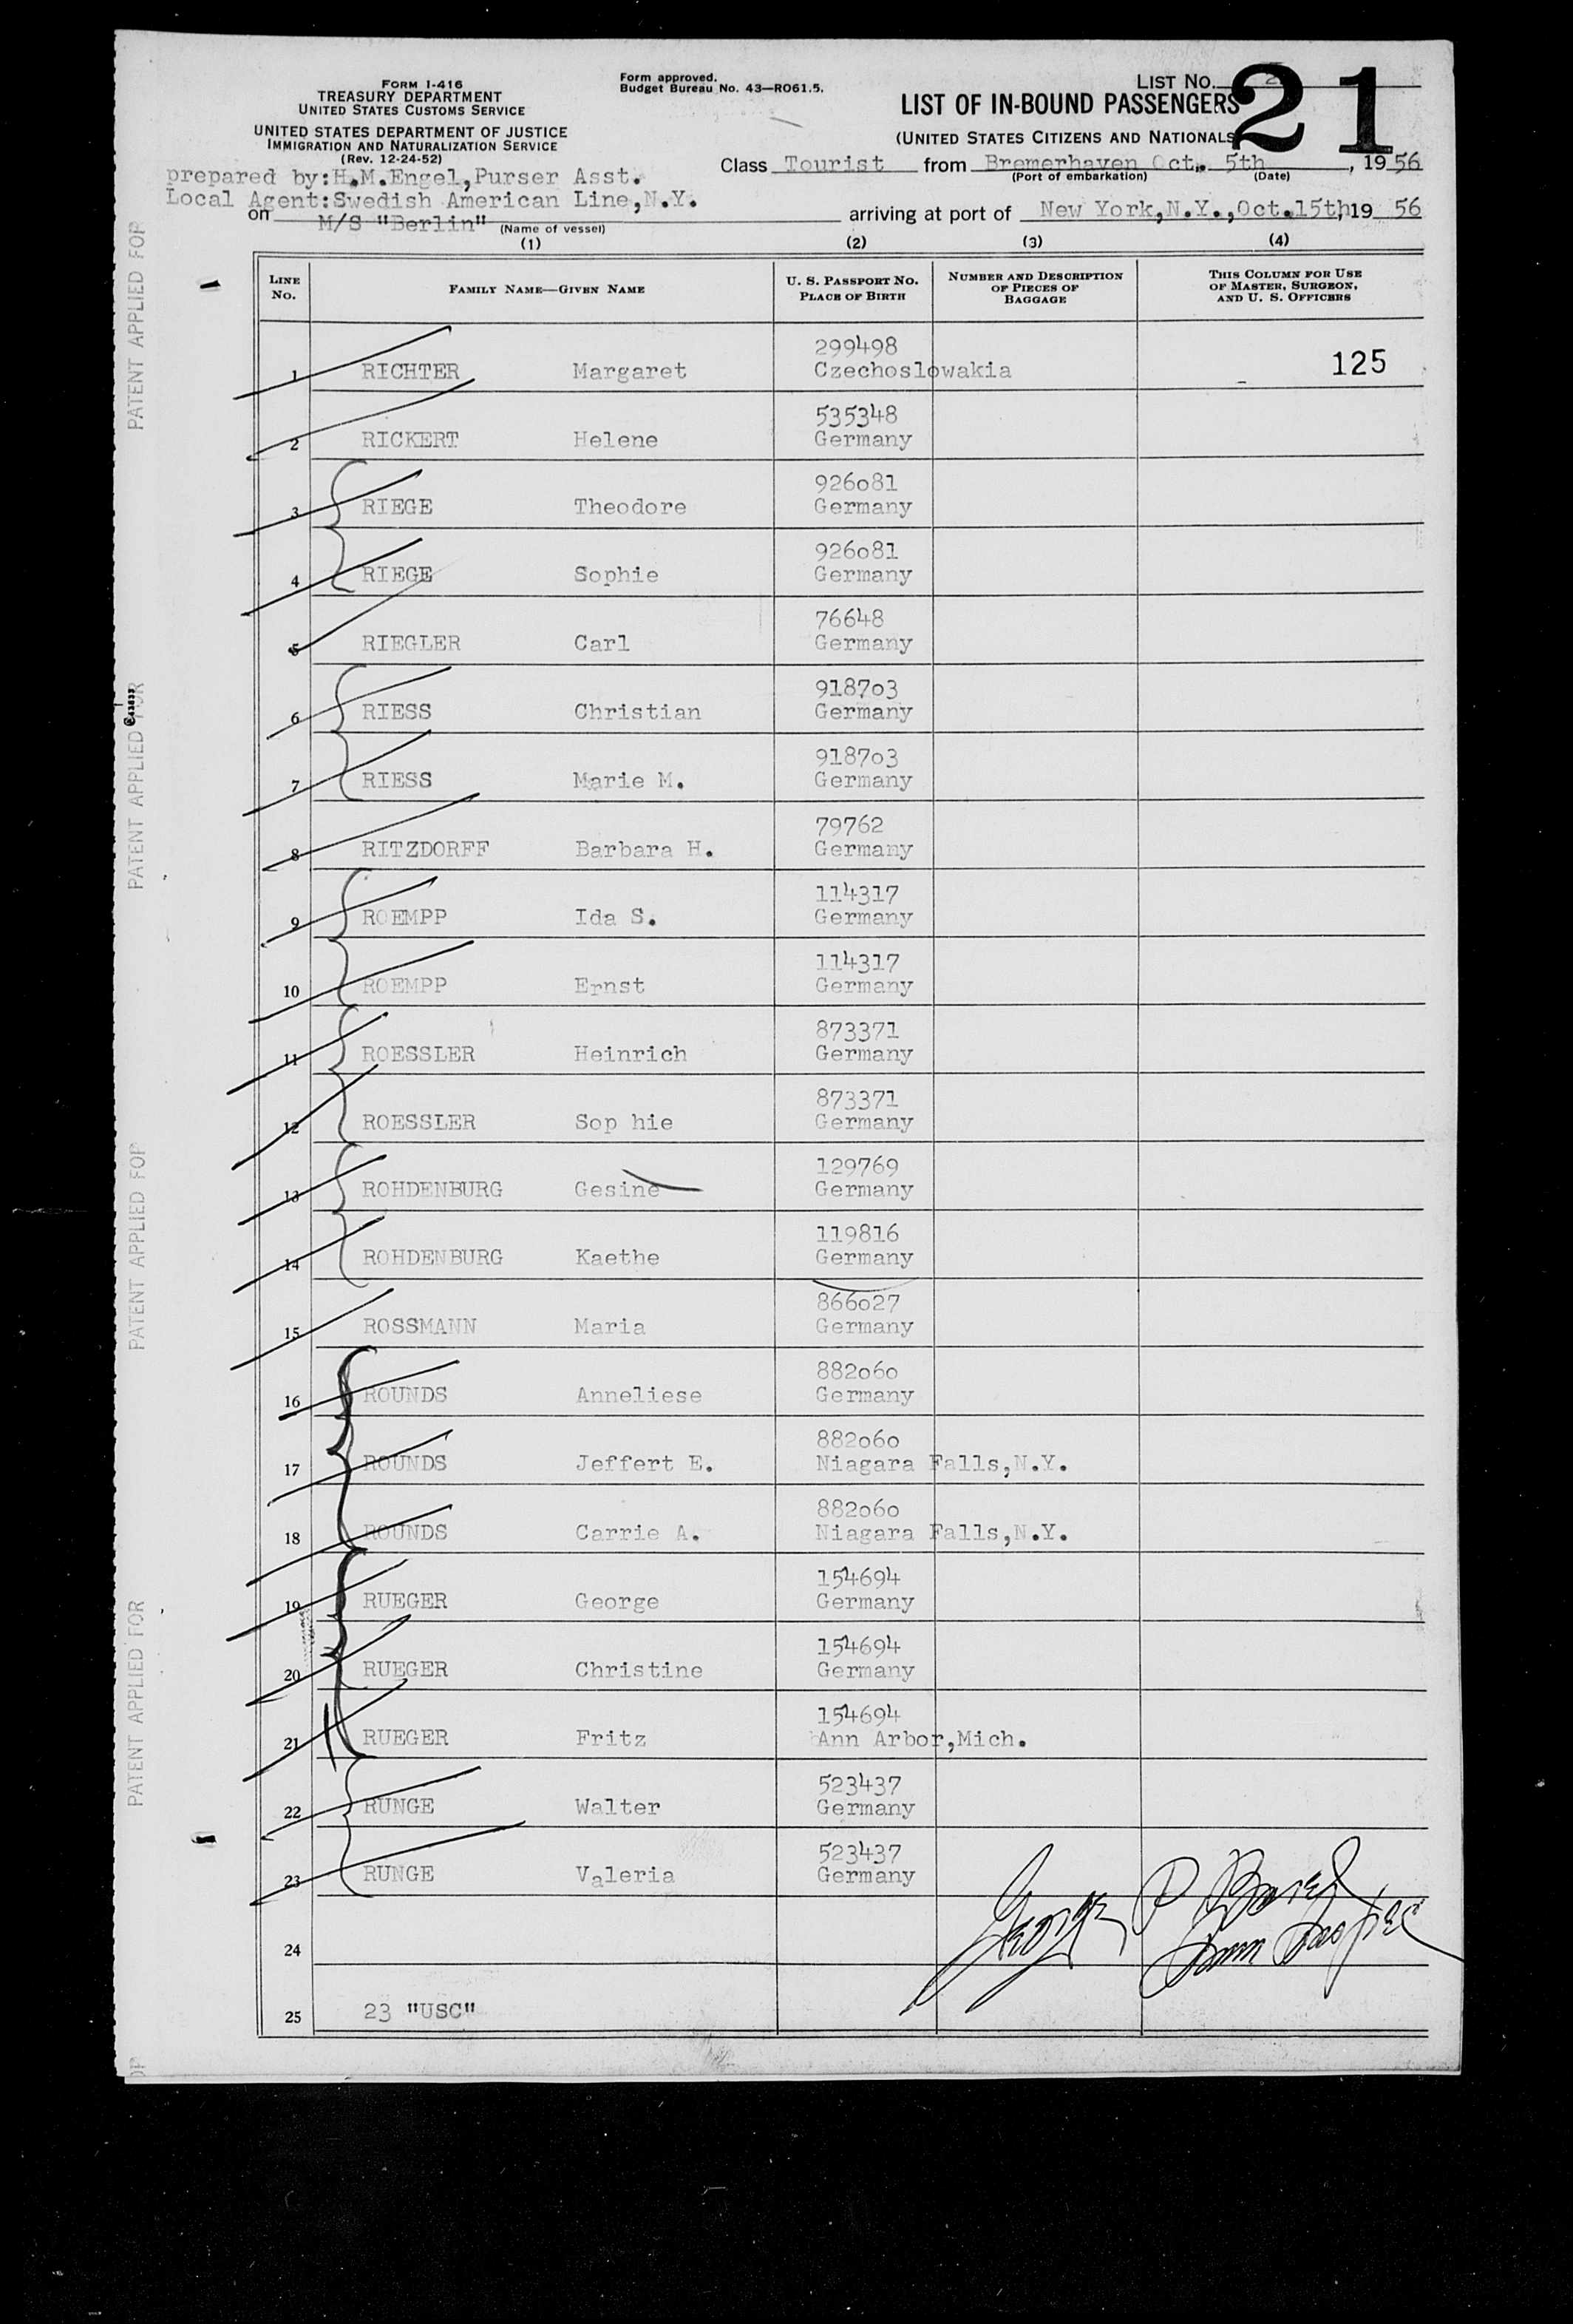 FORM I-416
TREASURY DEPARTMENT
UNITED STATES CUSTOMS SERVICE
UNITED STATES DEPARTMENT OF JUSTICE
IMMIGRATION AND NATURALIZATION SERVICE
(Rev. 12-24-52)
Form approved.
Budget Bureau No. 43—RO61.5.
LIST NO.
21
LIST OF IN-BOUND PASSENGERS
(UNITED STATES CITIZENS AND NATIONALS
Class Tourist from Bremerhaven Oct. 5th, 1956
(Port of embarkation) (Date)
prepared by:H.M.Engel,Purser Asst.
Local Agent:Swedish American Line,N.Y.
on M/S "Berlin"
(Name of vessel)
arriving at port of New York,N.Y.,Oct.15th 19 56
(1) (2) (3) (4)
LINE No. FAMILY NAME—GIVEN NAME U. S. PASSPORT NO. PLACE OF BIRTH NUMBER AND DESCRIPTION OF PIECES OF BAGGAGE THIS COLUMN FOR USE OF MASTER, SURGEON, AND U. S. OFFICERS
299498
1 RICHTER Margaret Czechoslowakia 125
535348
2 RICKERT Helene Germany
926o81
3 RIEGE Theodore Germany
926o81
4 RIEGE Sophie Germany
76648
5 RIEGLER Carl Germany
9187o3
6 RIESS Christian Germany
9187o3
7 RIESS Marie M. Germany
79762
8 RITZDORFF Barbara H. Germany
114317
9 ROEMPP Ida S. Germany
114317
10 ROEMPP Ernst Germany
873371
11 ROESSLER Heinrich Germany
873371
12 ROESSLER Sop hie Germany
129769
13 ROHDENBURG Gesine Germany
119816
14 ROHDENBURG Kaethe Germany
866o27
15 ROSSMANN Maria Germany
882o6o
16 ROUNDS Anneliese Germany
882o6o
17 ROUNDS Jeffert E. Niagara Falls,N.Y.
882o6o
18 ROUNDS Carrie A. Niagara Falls,N.Y.
154694
19 RUEGER George Germany
154694
20 RUEGER Christine Germany
154694
21 RUEGER Fritz Ann Arbor,Mich.
523437
22 RUNGE Walter Germany
523437
23 RUNGE Valeria Germany
George P
24
25 23 "USC"
PATENT APPLIED FOR
PATENT APPLIED FOR
PATENT APPLIED FOR
PATENT APPLIED FOR